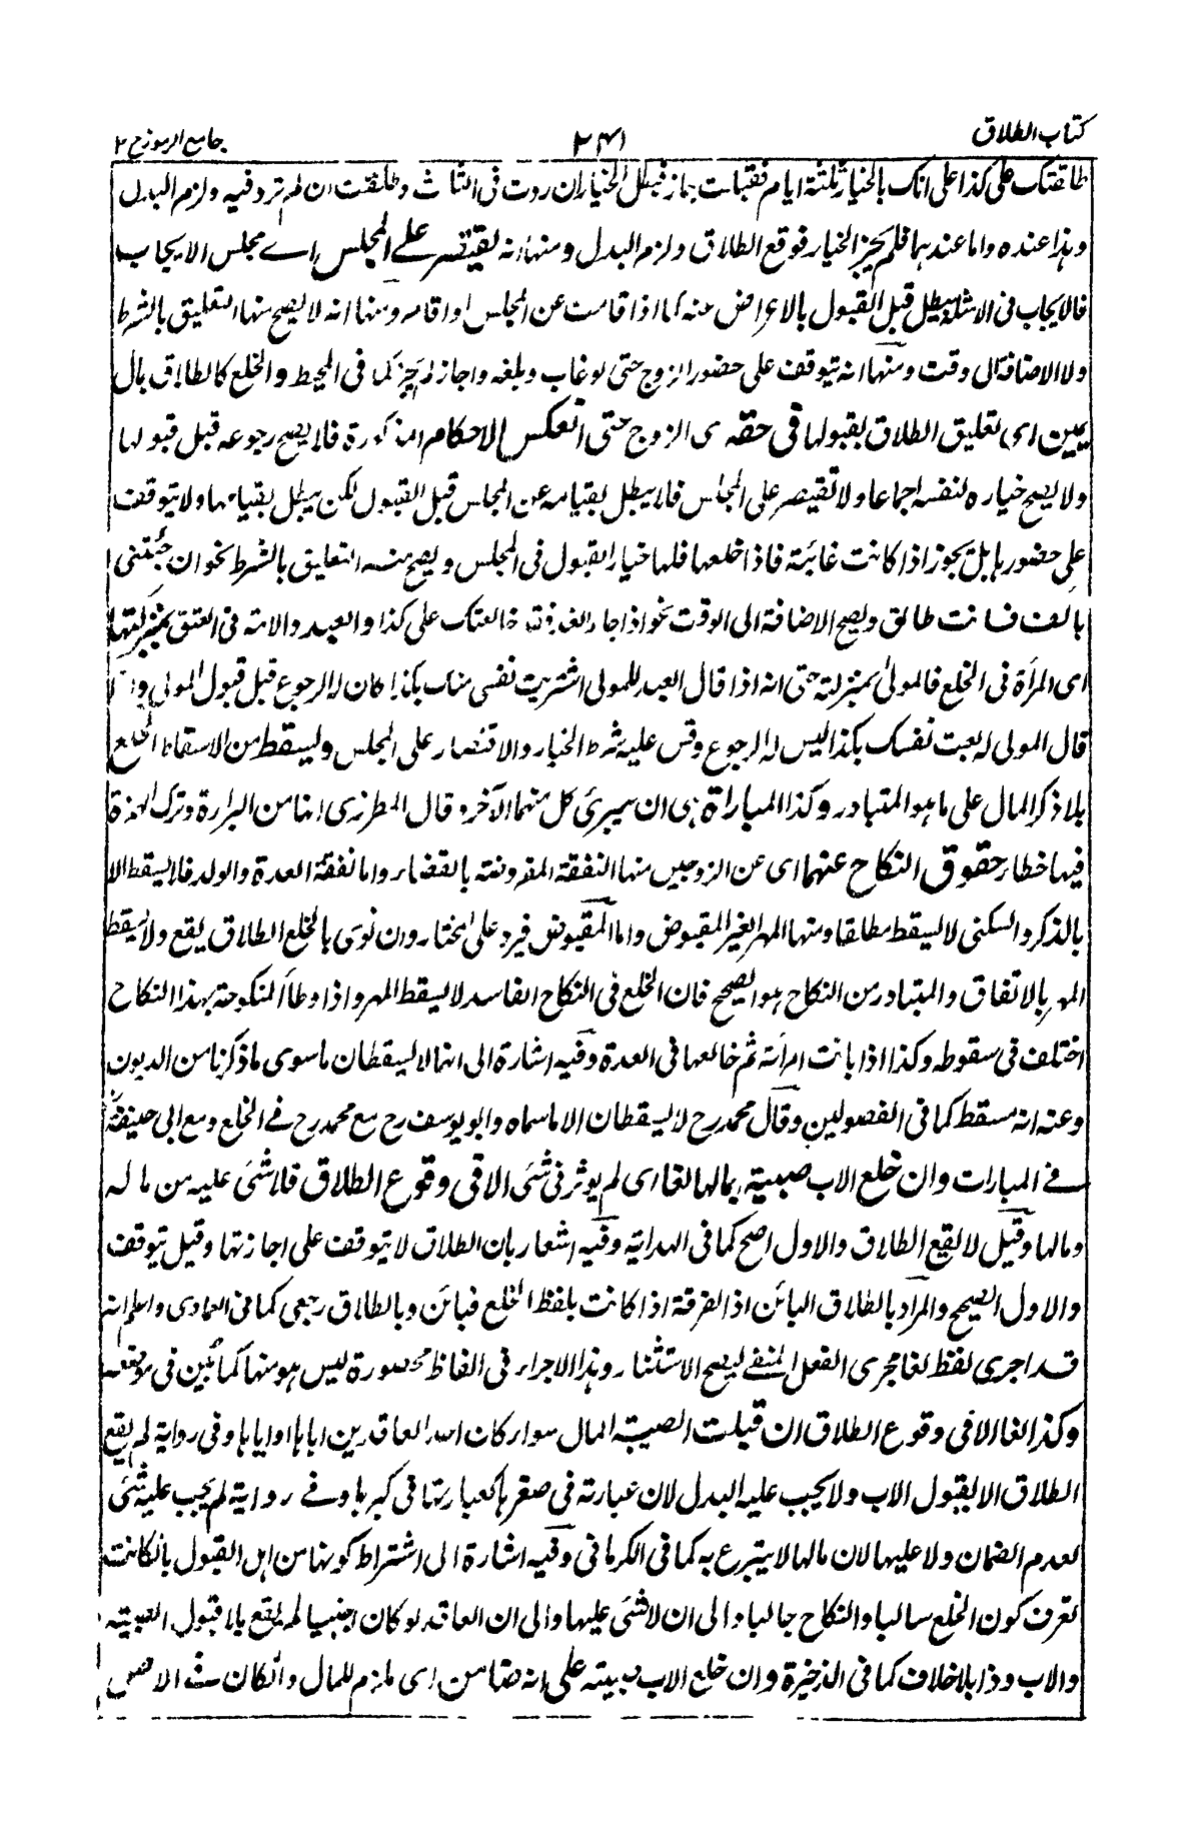 كتاب الطلاق ٢٤١ جامع الرموز ج ٢
طالقتك على كذا على انك بالخيار ثلثة ايام فقبلت جاز فبطل الخيار ان ردت فى الثالث وطلقت ان لم ترد فيه ولزم البدل
وهذا عنده واما عندهما فلم يجز الخيار فوقع الطلاق ولزم البدل ومنها انه يقتصر على المجلس اے مجلس الايجاب
فالايجاب فى الامثلة يبطل قبل القبول بالاعراض عنه كما اذا قامت عن المجلس او اقامه ومنها انه لا يصح منها التعليق بالشرط
ولا الاضافة الى وقت ومنها انه يتوقف على حضور الزوج حتى لو غاب وبلغه واجاز لم يجز كما فى المحيط والخلع كالطلاق بمال
يمين اى تعليق الطلاق بقبولها فى حقه اى الزوج حتى انعكس الاحكام المذكورة فلا يصح رجوعه قبل قبولها
ولا يصح خياره لنفسه اجماعا ولا تقتصر على المجلس فلا يبطل بقيامه عن المجلس قبل القبول لكن يبطل بقيامها ولا يتوقف
على حضورها بل يجوز اذا كانت غائبة فاذا خلعها فلها خيار القبول فى المجلس ويصح منه التعليق بالشرط نحو ان جئتنى
بالف فانت طالق ويصح الاضافة الى الوقت نحو اذا جاء الغد فقد خالعتك على كذا والعبد والامة فى العتق بمنزلتها
اى المرأة فى الخلع فالمولى بمنزلته حتى انه اذا قال العبد للمولى اشتريت نفسى منك بكذا كان له الرجوع قبل قبول المولى واذا
قال المولى له بعت نفسك بكذا ليس له الرجوع وقس عليه شرط الخيار والاقتصار على المجلس ويسقط من الاسقاط الخلع
بلا ذكر المال على ما هو المتبادر وكذا المباراة هى ان يبرئ كل منهما الآخر وقال المطرزى انها من البراءة وترك الهمزة
فيها خطاء حقوق النكاح عنهما اى عن الزوجين منها النفقة المفروضة بالقضاء واما نفقة العدة والولد فلا يسقط الا
بالذكر والسكنى لا يسقط مطلقا ومنها المهر الغير المقبوض واما المقبوض فيرد على المختار وان نوى بالخلع الطلاق يقع ولا يسقط
المهر بالاتفاق والمتبادر من النكاح هو الصحيح فان الخلع فى النكاح الفاسد لا يسقط المهر واذا وطأ المنكوحة بهذا النكاح
اختلف فى سقوطه وكذا اذا بانت امرأته ثم خالعها فى العدة وفيه اشارة الى انهما لا يسقطان ما سوى ما ذكرنا من الديون
وعنه انه مسقط كما فى الفصولين وقال محمد رح لا يسقطان الا ما سماه وابو يوسف رح مع محمد رح فے الخلع ومع ابى حنيفة رح
فے المبارات وان خلع الاب صبيته بمالها لغا اى لم يوثر فى شئ الا فى وقوع الطلاق فلا شئ عليه من ماله
ومالها وقيل لا يقع الطلاق والاول اصح كما فى الهداية وفيه اشعار بان الطلاق لا يتوقف على اجازتها وقيل يتوقف
والاول الصحيح والمراد بالطلاق البائن اذ الفرقة اذا كانت بلفظ الخلع فبائن وبالطلاق رجعى كما فى العمادى واعلم انه
قد اجرى لفظ لغا مجرى الفعل المنفے ليصح الاستثناء وهذا الاجراء فى الفاظ محصورة ليس هو منها كما بُين فى موضعه
وكذا لغا الا فى وقوع الطلاق ان قبلت الصبية المال سواء كان احد العاقدين اباها او اياها وفى رواية لم يقع
الطلاق الا بقبول الاب ولا يجب عليه البدل لان عبارته فى صغرها كعبارتها فى كبرها وفے رواية لم يجب عليه شئ
لعدم الضمان ولا عليها لان مالها لا يتبرع به كما فى الكرمانى وفيه اشارة الى اشتراط كونها من اهل القبول بان كانت
تعرف كون الخلع سالبا والنكاح جالبا والى ان لا شئ عليها والى ان العاقد لو كان اجنبيا لم يقع بلا قبول الصبية
والاب وذا بلا خلاف كما فى الذخيرة وان خلع الاب صبيته على انه ضامن اى ملزم للمال وان كان فے الاصل